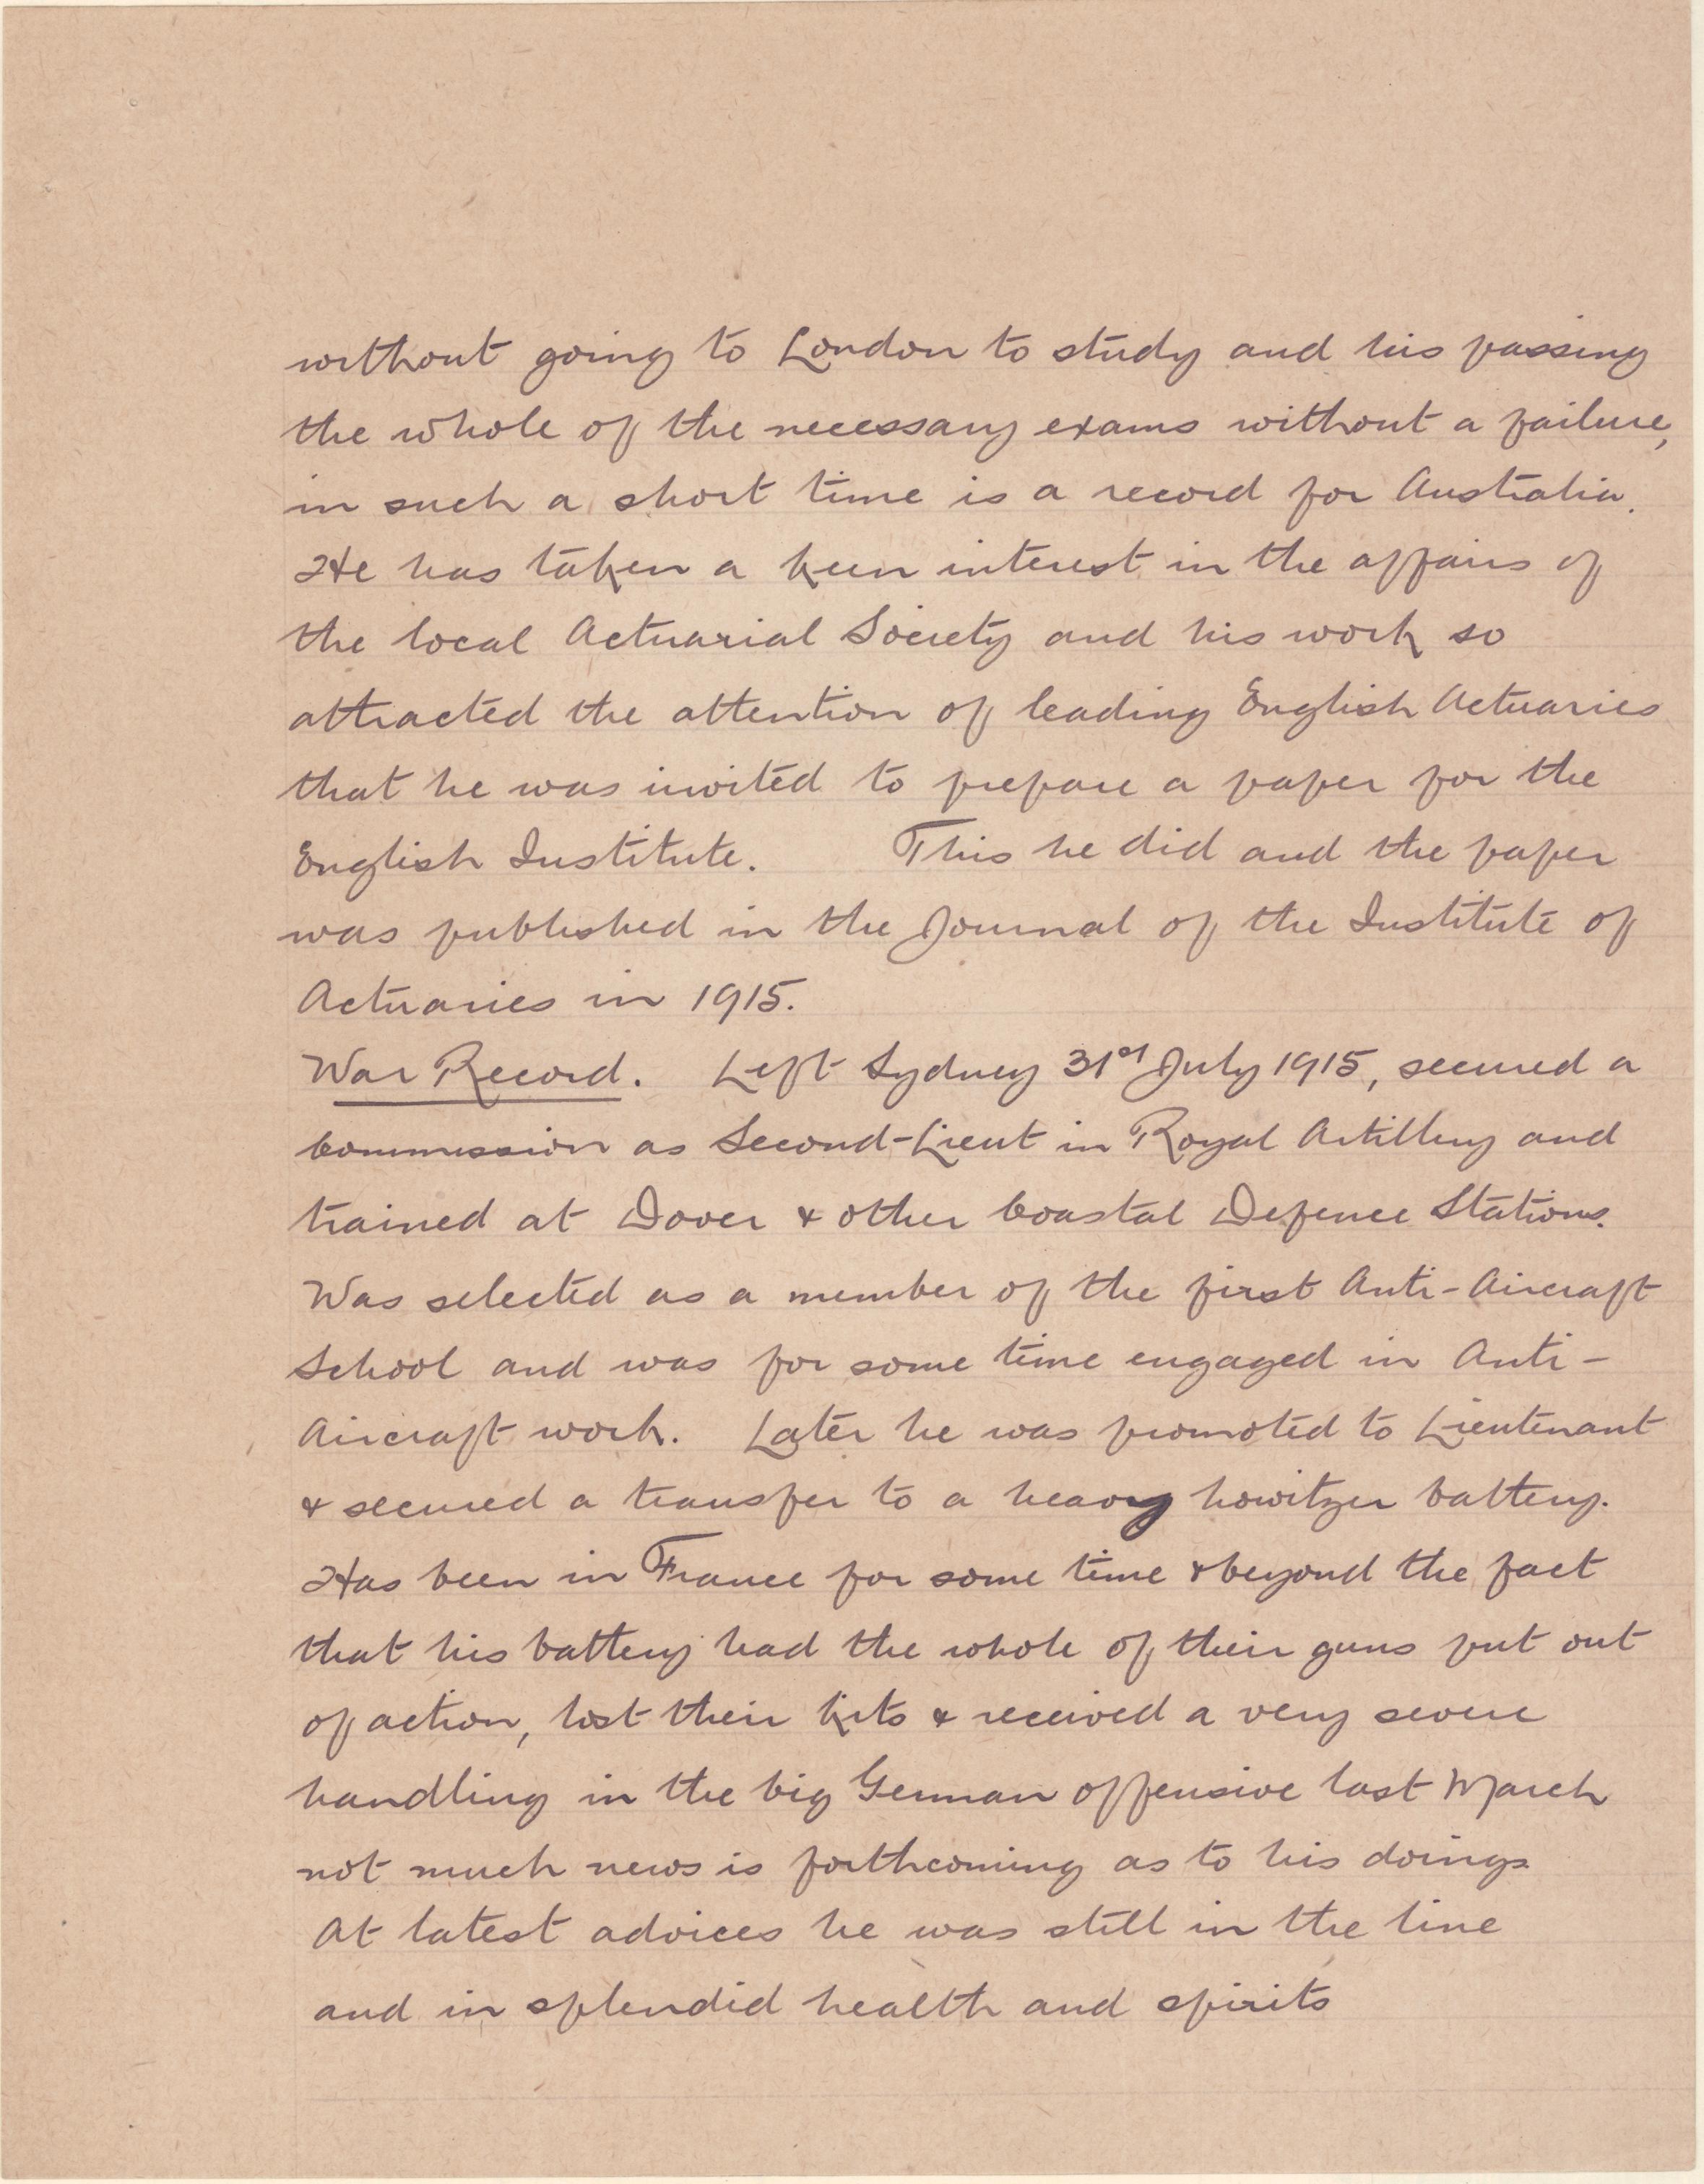 without going to London to study and his passing
the whole of the necessary exams without a failure,
in such a short time is a record for Australia.
He has taken a keen interest in the affairs of
the local Actuarial Society and his work so
attracted the attention of leading English Actuaries
that he was invited to prepare a paper for the
English Institute. This he did and the paper
was published in the Journal of the Institute of
Actuaries in 1915.
War Record. Left Sydney 31st July 1915, secured a
Commission as Second-Lieut in Royal Artillery and
trained at Dover & other Coastal Defence Stations.
Was selected as a member of the first Anti-Aircraft
School and was for some time engaged in Anti-
Aircraft work. Later he was promoted to Lieutenant
& secured a transfer to a heavy howitzer battery.
Has been in France for some time & beyond the fact
that his battery had the whole of their guns put out
of action, lost their kits & received a very severe
handling in the big German offensive last March
not much news is forthcoming as to his doings.
At latest advices he was still in the line
and in splendid health and spirits